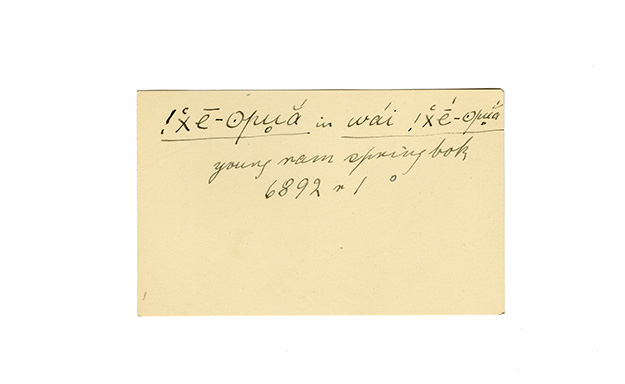 !χ̊ē-ʘpu̧ă in wái !χ̊é-ʘpu̧á
young ram springbok
6892 r 1 °